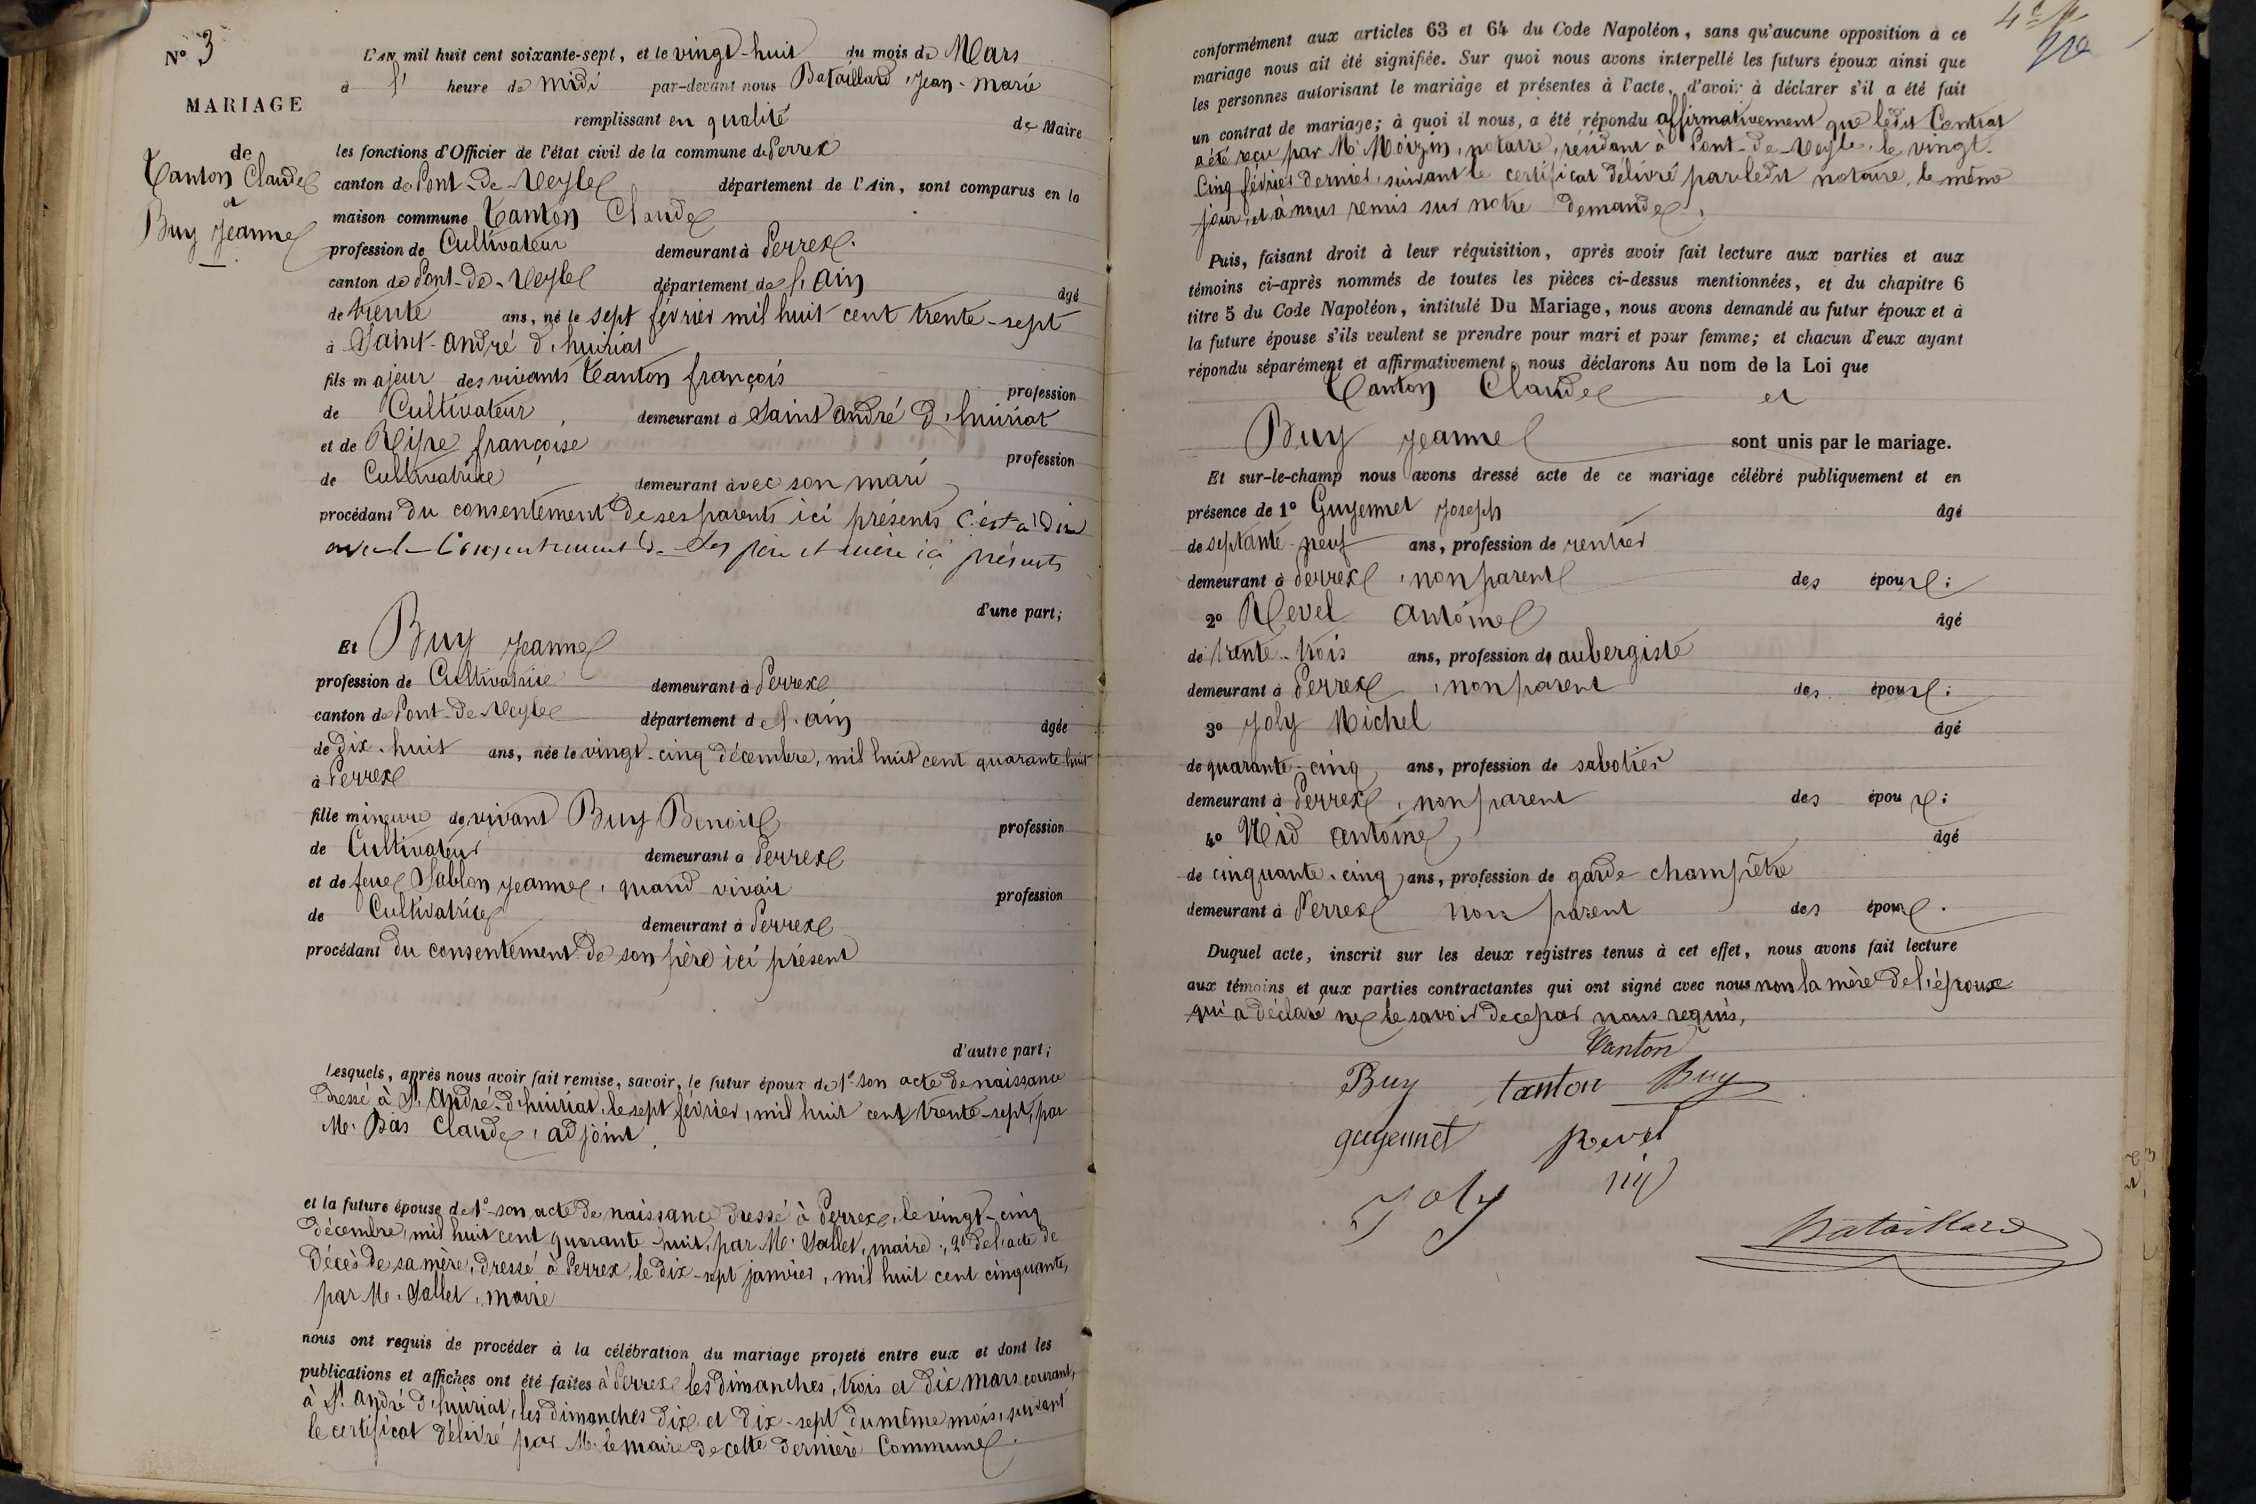 N° 3
MARIAGE
de
Tanton Claude
et
Buy Jeanne
L'AN mil huit cent soixante-sept, et le vingt-huit du mois de Mars
à l' heure de midi par-devant nous Bataillard, Jean-Marie
remplissant en qualité de Maire
les fonctions d'Officier de l'état civil de la commune de Perrex
canton de Pont-de-Veyle département de l'Ain, sont comparus en la
maison commune Tanton Claude
profession de Cultivateur demeurant à Perrex.
canton de Pont-de-Veyle département de l'ain âgé
de trente ans, né le sept février mil huit cent trente-sept
à Saint-andré d'huiriat
fils majeur des vivants Tanton françois profession
de Cultivateur demeurant à Saint andré d'huiriat
et de Ripe françoise profession
de Cultivatrice demeurant avec son mari
procédant du consentement de ses parents ici présents c'est à dire
avec le consentement de ses père et mère ici présents
d'une part;
Et Buy Jeanne
profession de Cultivatrice demeurant à Perrex
canton de Pont-de-Veyle département de l'ain âgée
de dix-huit ans, née le vingt-cinq décembre, mil huit cent quarante huit
à Perrex
fille mineure de vivant Buy Benoit profession
de Cultivateur demeurant à Perrex
et de feue Sablon Jeanne, quand vivait profession
de Cultivatrice demeurant à Perrex
procédant du consentement de son père ici présent
d'autre part;
Lesquels, après nous avoir fait remise, savoir, le futur époux de 1° son acte de naissance
dressé à St. André-d'huiriat, le sept février, mil huit cent trente-sept, par
Mr. Bas Claude, adjoint.
et la future épouse de 1° son acte de naissance dressé à Perrex, le vingt-cinq
décembre, mil huit cent quarante-huit, par Mr. Sallet, maire; 2° de l'acte de
décès de sa mère, dressé à Perrex, le dix-sept janvier, mil huit cent cinquante,
par Mr. Sallet, maire
nous ont requis de procéder à la célébration du mariage projeté entre eux et dont les
publications et affiches ont été faites à Perrex les dimanches, trois et dix mars courant,
à St. André d'huiriat, les dimanches dix et dix-sept du même mois, suivant
le certificat délivré par Mr. le maire de cette dernière Commune.
conformément aux articles 63 et 64 du Code Napoléon, sans qu'aucune opposition à ce
mariage nous ait été signifiée. Sur quoi nous avons interpellé les futurs époux ainsi que
les personnes autorisant le mariage et présentes à l'acte, d'avoir à déclarer s'il a été fait
un contrat de mariage; à quoi il nous, a été répondu affirmativement que ledit Contrat
a été reçu par Mr Moizin, notaire, résidant à Pont-de-Veyle, le vingt-
cinq février dernier, suivant le certificat délivré par ledit notaire, le même
jour, et à nous remis sur notre demande.
Puis, faisant droit à leur réquisition, après avoir fait lecture aux parties et aux
témoins ci-après nommés de toutes les pièces ci-dessus mentionnées, et du chapitre 6
titre 5 du Code Napoléon, intitulé Du Mariage, nous avons demandé au futur époux et à
la future épouse s'ils veulent se prendre pour mari et pour femme; et chacun d'eux ayant
répondu séparément et affirmativement, nous déclarons Au nom de la Loi que
Tanton Claude et
Buy Jeanne sont unis par le mariage.
Et sur-le-champ nous avons dressé acte de ce mariage célébré publiquement et en
présence de 1° Guyennet Joseph âgé
de septante-neuf ans, profession de rentier
demeurant à Perrex, non parent des époux;
2° Revel Antoine âgé
de trente-trois ans, profession de aubergiste
demeurant à Perrex, non parent des époux;
3° Joly Michel âgé
de quarante-cinq ans, profession de sabotier
demeurant à Perrex, non parent des époux;
4° Nid Antoine âgé
de cinquante-cinq ans, profession de garde champêtre
demeurant à Perrex non parent des époux.
Duquel acte, inscrit sur les deux registres tenus à cet effet, nous avons fait lecture
aux témoins et aux parties contractantes qui ont signé avec nous non la mère de l'époux
qui a déclaré ne le savoir de ce par nous requis,
Tanton
Buy tanton Buy
guyennet Revel
Joly nid
Bataillard